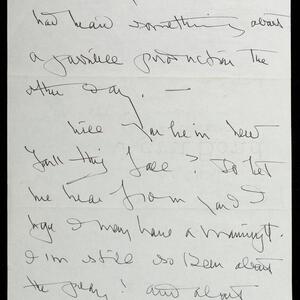 had heard something about
a possible production the
other day. —
Will you be in New
York this Fall? Do let
me hear from you & I
hope I may have a manuscript.
I'm still so keen about
the play! and about